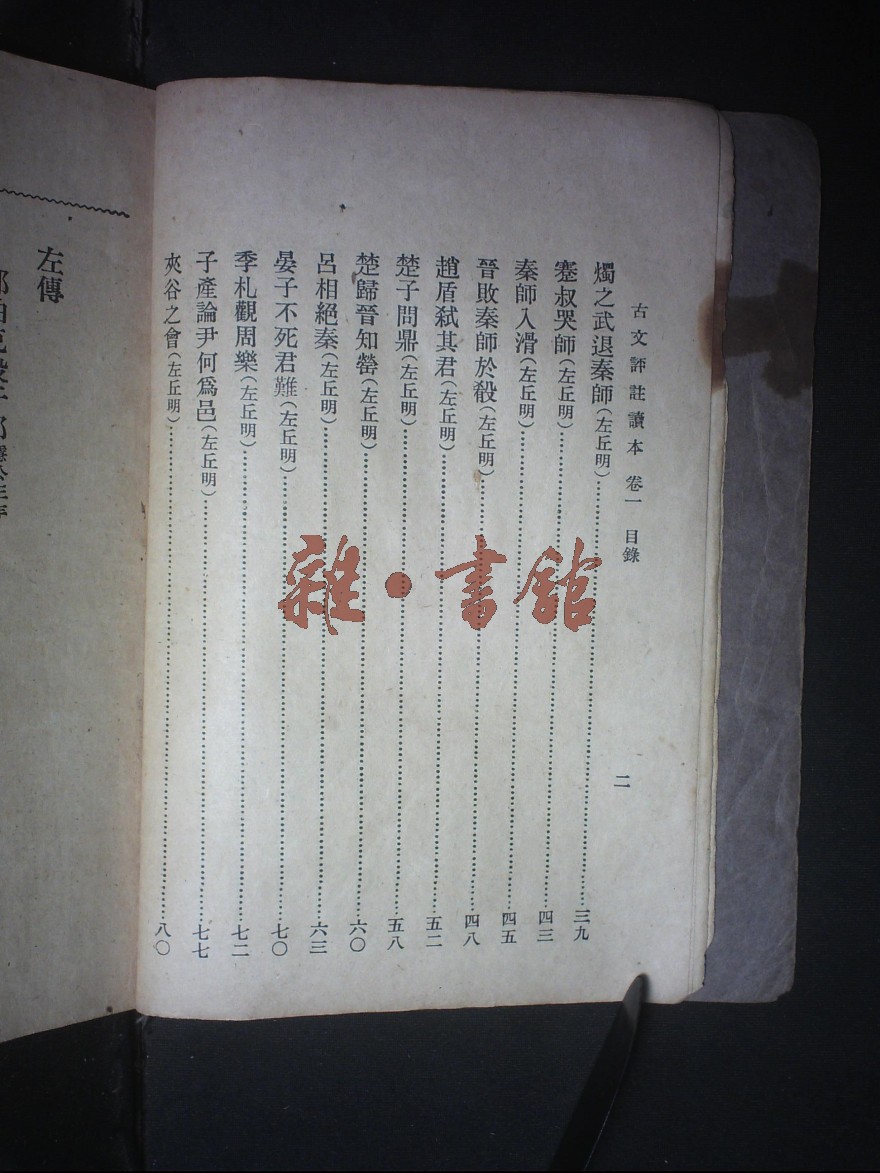 古文評註讀本 卷一 目錄 二
燭之武退秦師(左丘明)…………三九
蹇叔哭師(左丘明)…………四三
秦師入滑(左丘明)…………四五
晉敗秦師於殽(左丘明)…………四八
趙盾弑其君(左丘明)…………五二
楚子問鼎(左丘明)…………五八
楚歸晉知罃(左丘明)…………六〇
呂相絕秦(左丘明)…………六三
晏子不死君難(左丘明)…………七〇
季札觀周樂(左丘明)…………七二
子產論尹何爲邑(左丘明)…………七七
夾谷之會(左丘明)…………八〇
左傳
雜·書館